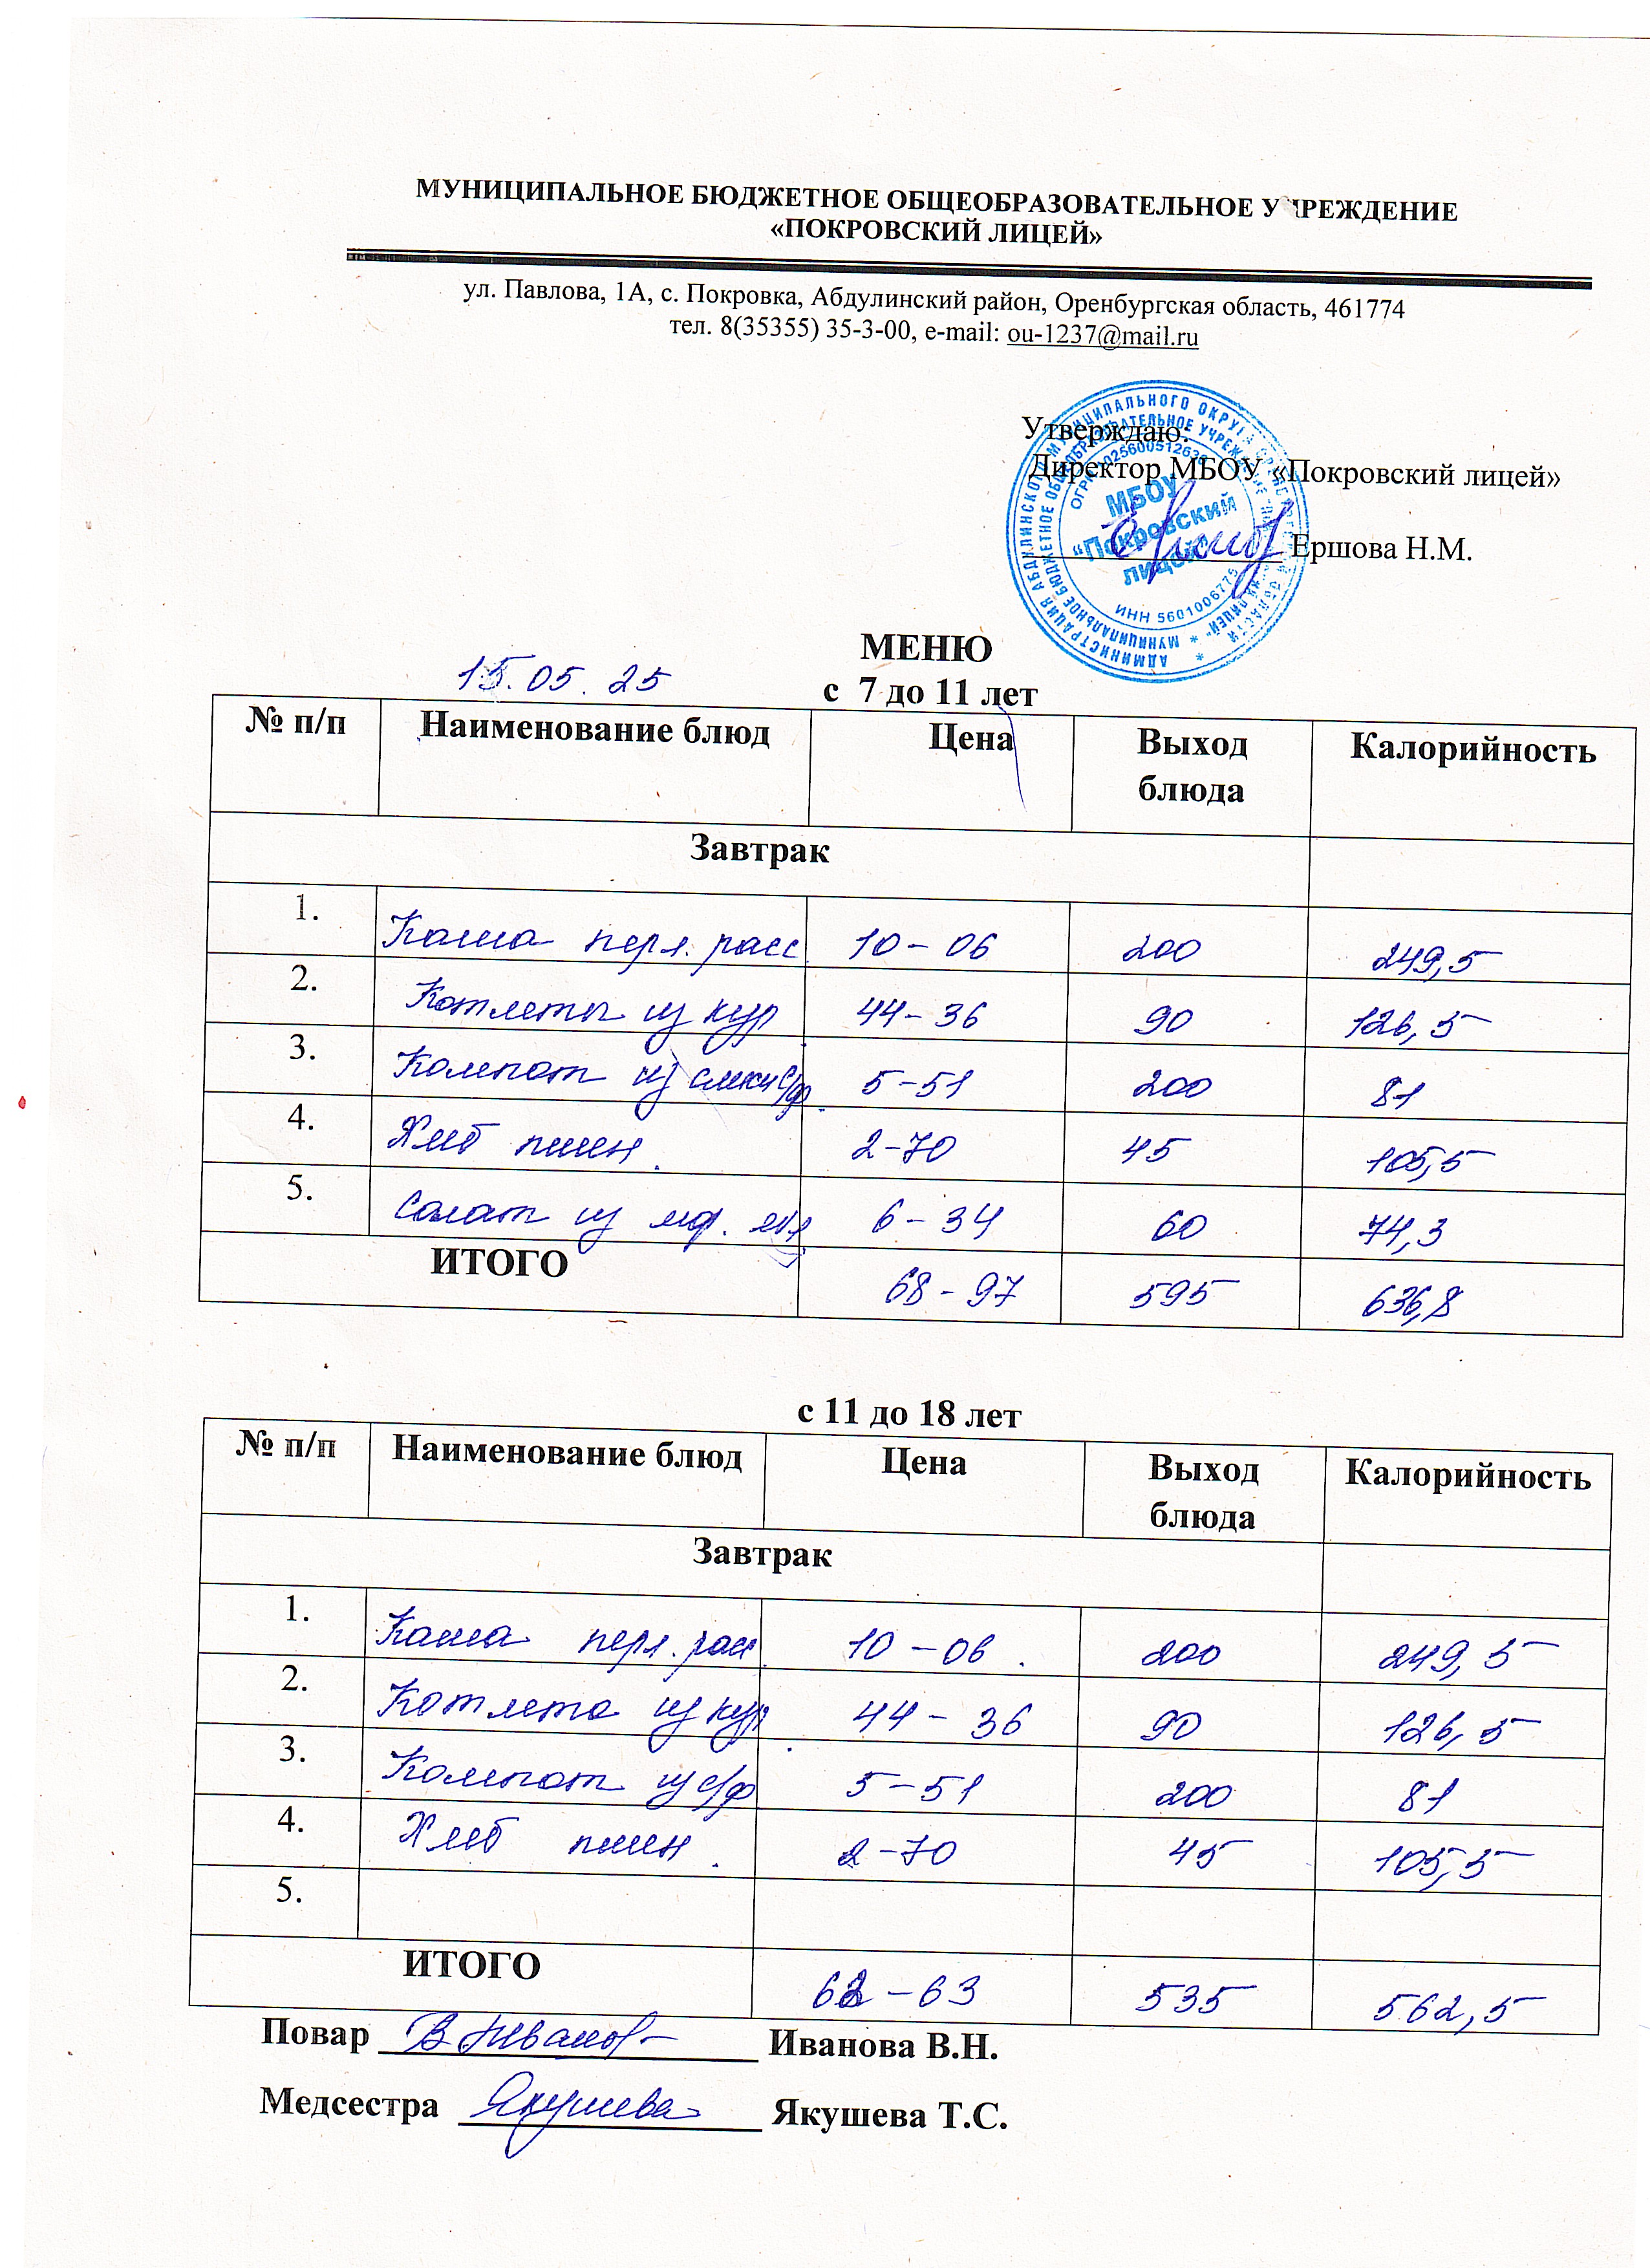 МУНИЦИПАЛЬНОЕ БЮДЖЕТНОЕ ОБЩЕОБРАЗОВАТЕЛЬНОЕ УЧРЕЖДЕНИЕ
«ПОКРОВСКИЙ ЛИЦЕЙ»
ул. Павлова, 1А, с. Покровка, Абдулинский район, Оренбургская область, 461774
тел. 8(35355) 35-3-00, e-mail: ou-1237@mail.ru
Утверждаю:
Директор МБОУ «Покровский лицей»
Ершова Н.М.
МБОУ
"Покровский
лицей"
ИНН 5601006775
МЕНЮ
15.05.25 с 7 до 11 лет
№ п/п Наименование блюд Цена Выход блюда Калорийность
Завтрак
1. Каша перл. расс 10-06 200 249,5
2. Котлеты из кур 44-36 90 126,5
3. Компот из смеси с/ф. 5-51 200 81
4. Хлеб пшен. 2-70 45 105,5
5. Салат из 6-34 60 74,3
ИТОГО 68-97 595 636,8
с 11 до 18 лет
№ п/п Наименование блюд Цена Выход блюда Калорийность
Завтрак
1. Каша перл. расс 10-06. 200 249,5
2. Котлета из кур. 44-36 90 126,5
3. Компот из с/ф 5-51 200 81
4. Хлеб пшен. 2-70 45 105,5
5.
ИТОГО 62-63 535 562,5
Повар Иванова В.Н.
Медсестра Якушева Якушева Т.С.